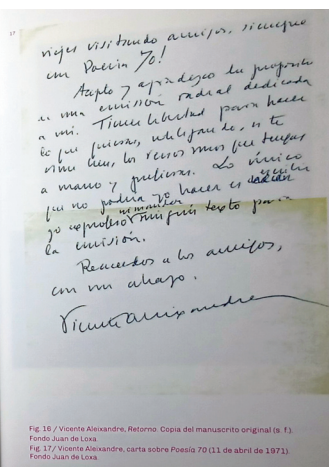 17
viajes visitando amigos, siempre
con Poesía 70!
Acepto y agradezco tu propósito
de una emisión radial dedicada
a mí. Tienes libertad para hacer
lo que quieras, utilizando, si te
vienen bien, los versos míos que tengas
a mano y prefieras. Lo único
que no podría yo hacer es escribir
yo exprofeso ni mandar ningún texto para
la emisión.
Recuerdos a los amigos,
con un abrazo.
Vicente Aleixandre
Fig. 16 / Vicente Aleixandre, Retorno. Copia del manuscrito original (s. f.).
Fondo Juan de Loxa
Fig. 17/ Vicente Aleixandre, carta sobre Poesía 70 (11 de abril de 1971).
Fondo Juan de Loxa